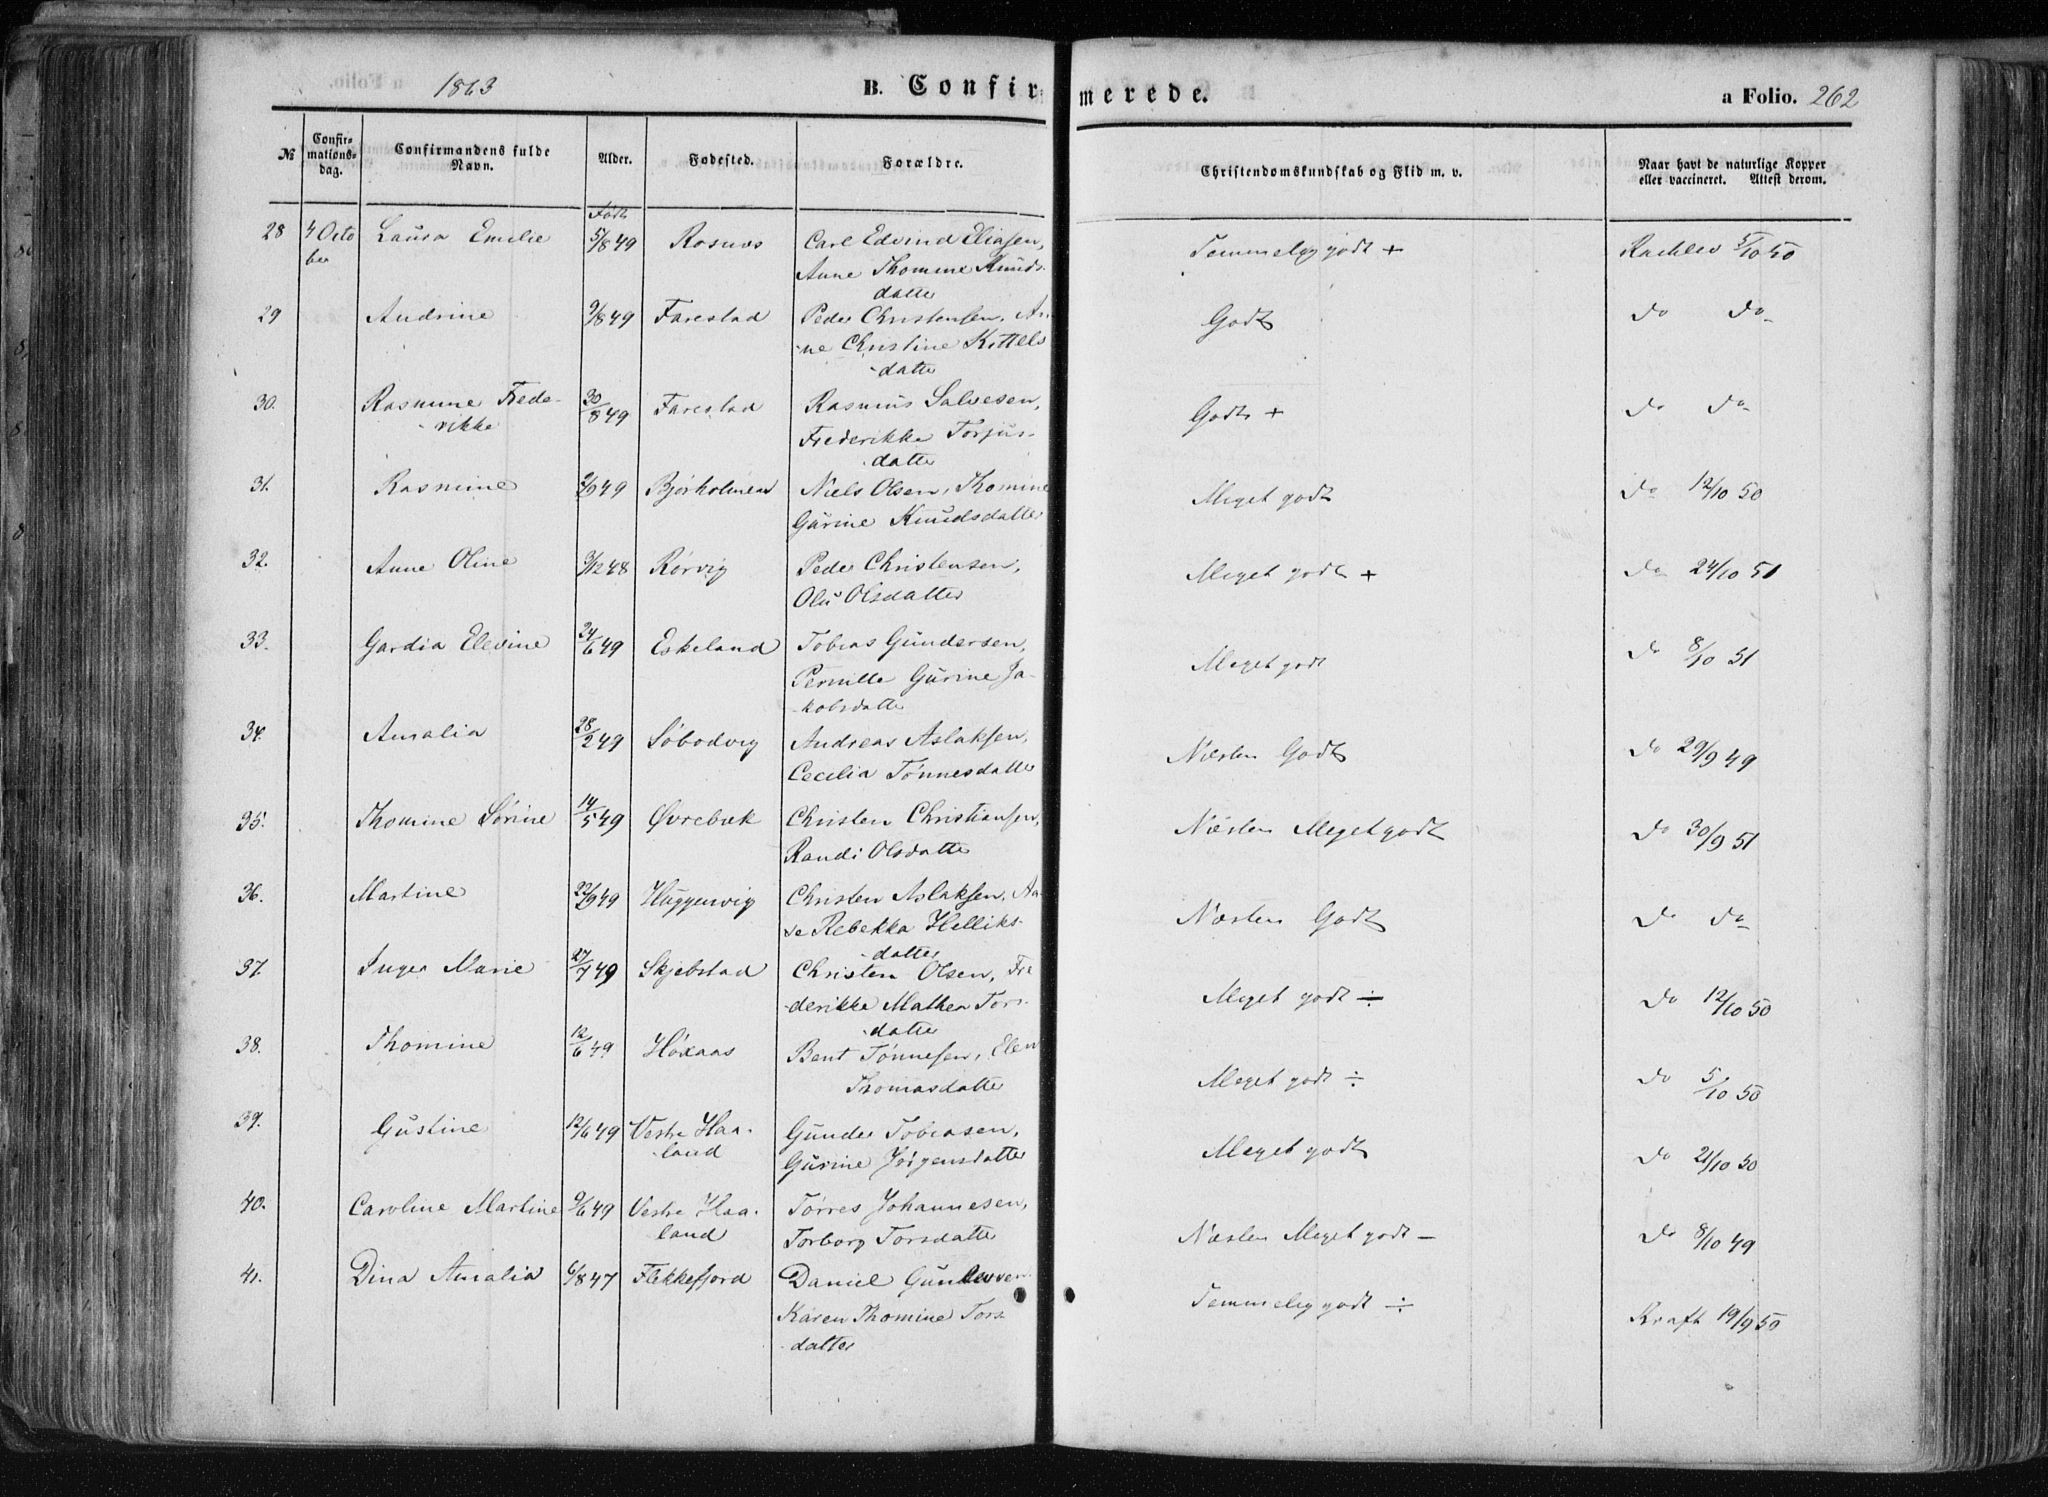 1863 B. Confirmerede. a Folio. 262
№ Confirmationsdag. Confirmandens fulde Navn. Alder. Fødested. Forældre. Christendomskundskab og Flid m. v. Naar havt de naturlige Kopper eller vaccineret. Attest derom.
28 4 Octo Laura Emilie Født 5/8 49 Rosnes Carl Edvind Eliasen, Temmelig godt + 5/10 50
ber Anne Thomine Knuds-
datter
29 Andrine 9/8 49 Farestad Peder Christensen, An- Godt Do Do
-ne Christine Kittels
-datter
30. Rasmine Frede- 30/8 49 Farestad Rasmus Salvesen, Godt + Do Do
-rikke Frederikke Torjus-
-datter
31. Rasmine 49 Bjørholmen Niels Olsen, Thomine Meget godt Do 12/10 50
Gurine Knudsdatter
32. Anne Oline 3/12 48 Rørvig Peder Christensen, Meget godt + Do 24/10 51
Olu Olsdatter
33. Gardia Elevine 24/6 49 Eskeland Tobias Gundersen, Meget godt Do 8/10 51
Pernille Gurine Ja-
-kobsdatter
34. Amalia 28/2 49 Søbodvig Andreas Aslaksen, Næsten Godt Do 29/9 49
Cecilia Tønnesdatter
35. Thomine Sørine 14/5 49 Øvrebæk Christen Christiansen, Næsten Meget godt Do 30/9 51
Randi Olsdatter
36. Martine 22/9 49 Huggenvig Christen Aslaksen, Aa- Næsten Godt Do Do
se Rebekka Helliks-
-datter
37. Inger Marie 27/7 49 Skjebstad Christen Olsen, Fre Meget godt ÷ Do 12/10 50
-derikke Mathea Tors-
-datter
38. Thomine 12/6 49 Høxaas Bent Tønnesen, Elen Meget godt ÷ Do 5/10 50
Thomasdatter
39. Gustine 12/6 49 Vestre Haa- Gunder Tobiasen, Meget godt Do 21/10 50
-land Gurine Jørgensdatter
40. Caroline Martine 9/6 49 Vestre Haa- Tørres Johannesen, Næsten Meget godt - Do 8/10 49
land Torborg Torsdatter
41. Dina Amalia 6/8 47 Flekkefjord Daniel Gundersen Temmelig godt ÷ Kraft 19/9 50
Karen Thomine Tors
-datter